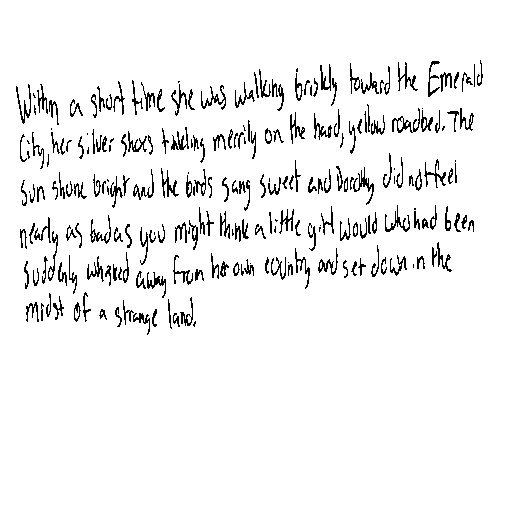 Within a short time she was walking briskly toward the Emerald
City, her silver shoes tinkling merrily on the hard, yellow roadbed. The
sun shone bright and the birds sang sweet and Dorothy did not feel
nearly as bad as you might think a little girl would who had been
suddenly whisked away from her own country and set down in the
midst of a strange land.